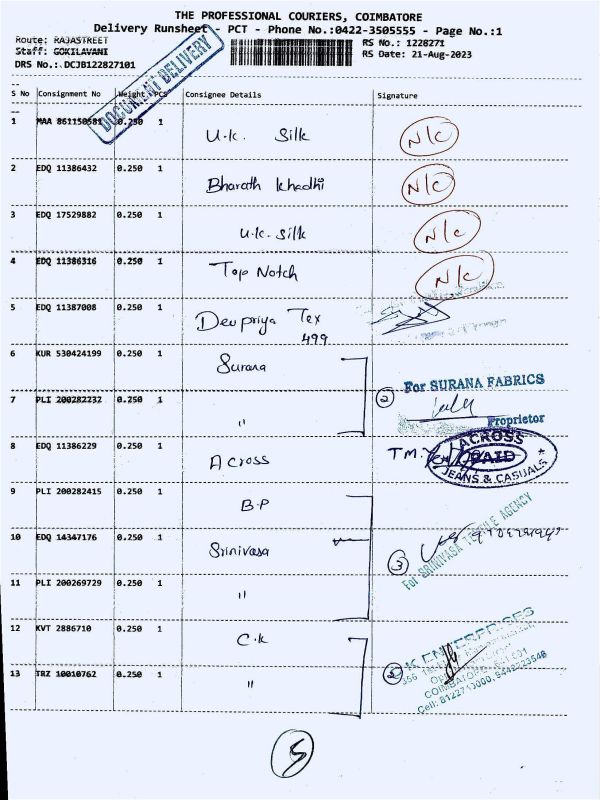 THE PROFESSIONAL COURIERS, COIMBATORE
Delivery Runsheet - PCT - Phone No.:0422-3505555 - Page No.:1
Route: RAJASTREET
RS No.: 1228271
Staff: GOKILAVANI
RS Date: 21-Aug-2023
DRS No.: DCJB122827101
DOCUMENT DELIVERY
S No Consignment No Weight PCS Consignee Details Signature
1 MAA 861150581 0.250 1 U.K. Silk N/C
2 EDQ 11386432 0.250 1 Bharath Khadhi N/C
3 EDQ 17529882 0.250 1 U.K. Silk N/C
4 EDQ 11386316 0.250 1 Top Notch N/C
5 EDQ 11387008 0.250 1 Devpriya Tex
499
6 KUR 530424199 0.250 1 Surana
2 For SURANA FABRICS
Proprietor
7 PLI 200282232 0.250 1 "
8 EDQ 11386229 0.250 1 Across T.M.
ACROSS
PAID
JEANS & CASUALS
9 PLI 200282415 0.250 1 B.P
10 EDQ 14347176 0.250 1 Srinivasa
3 For SRINIVASA TEXTILE AGENCY
11 PLI 200269729 0.250 1 "
12 KVT 2886710 0.250 1 C.K
K ENTERPRISES
13 TRZ 10010762 0.250 1 "
COIMBATORE
Cell:
5